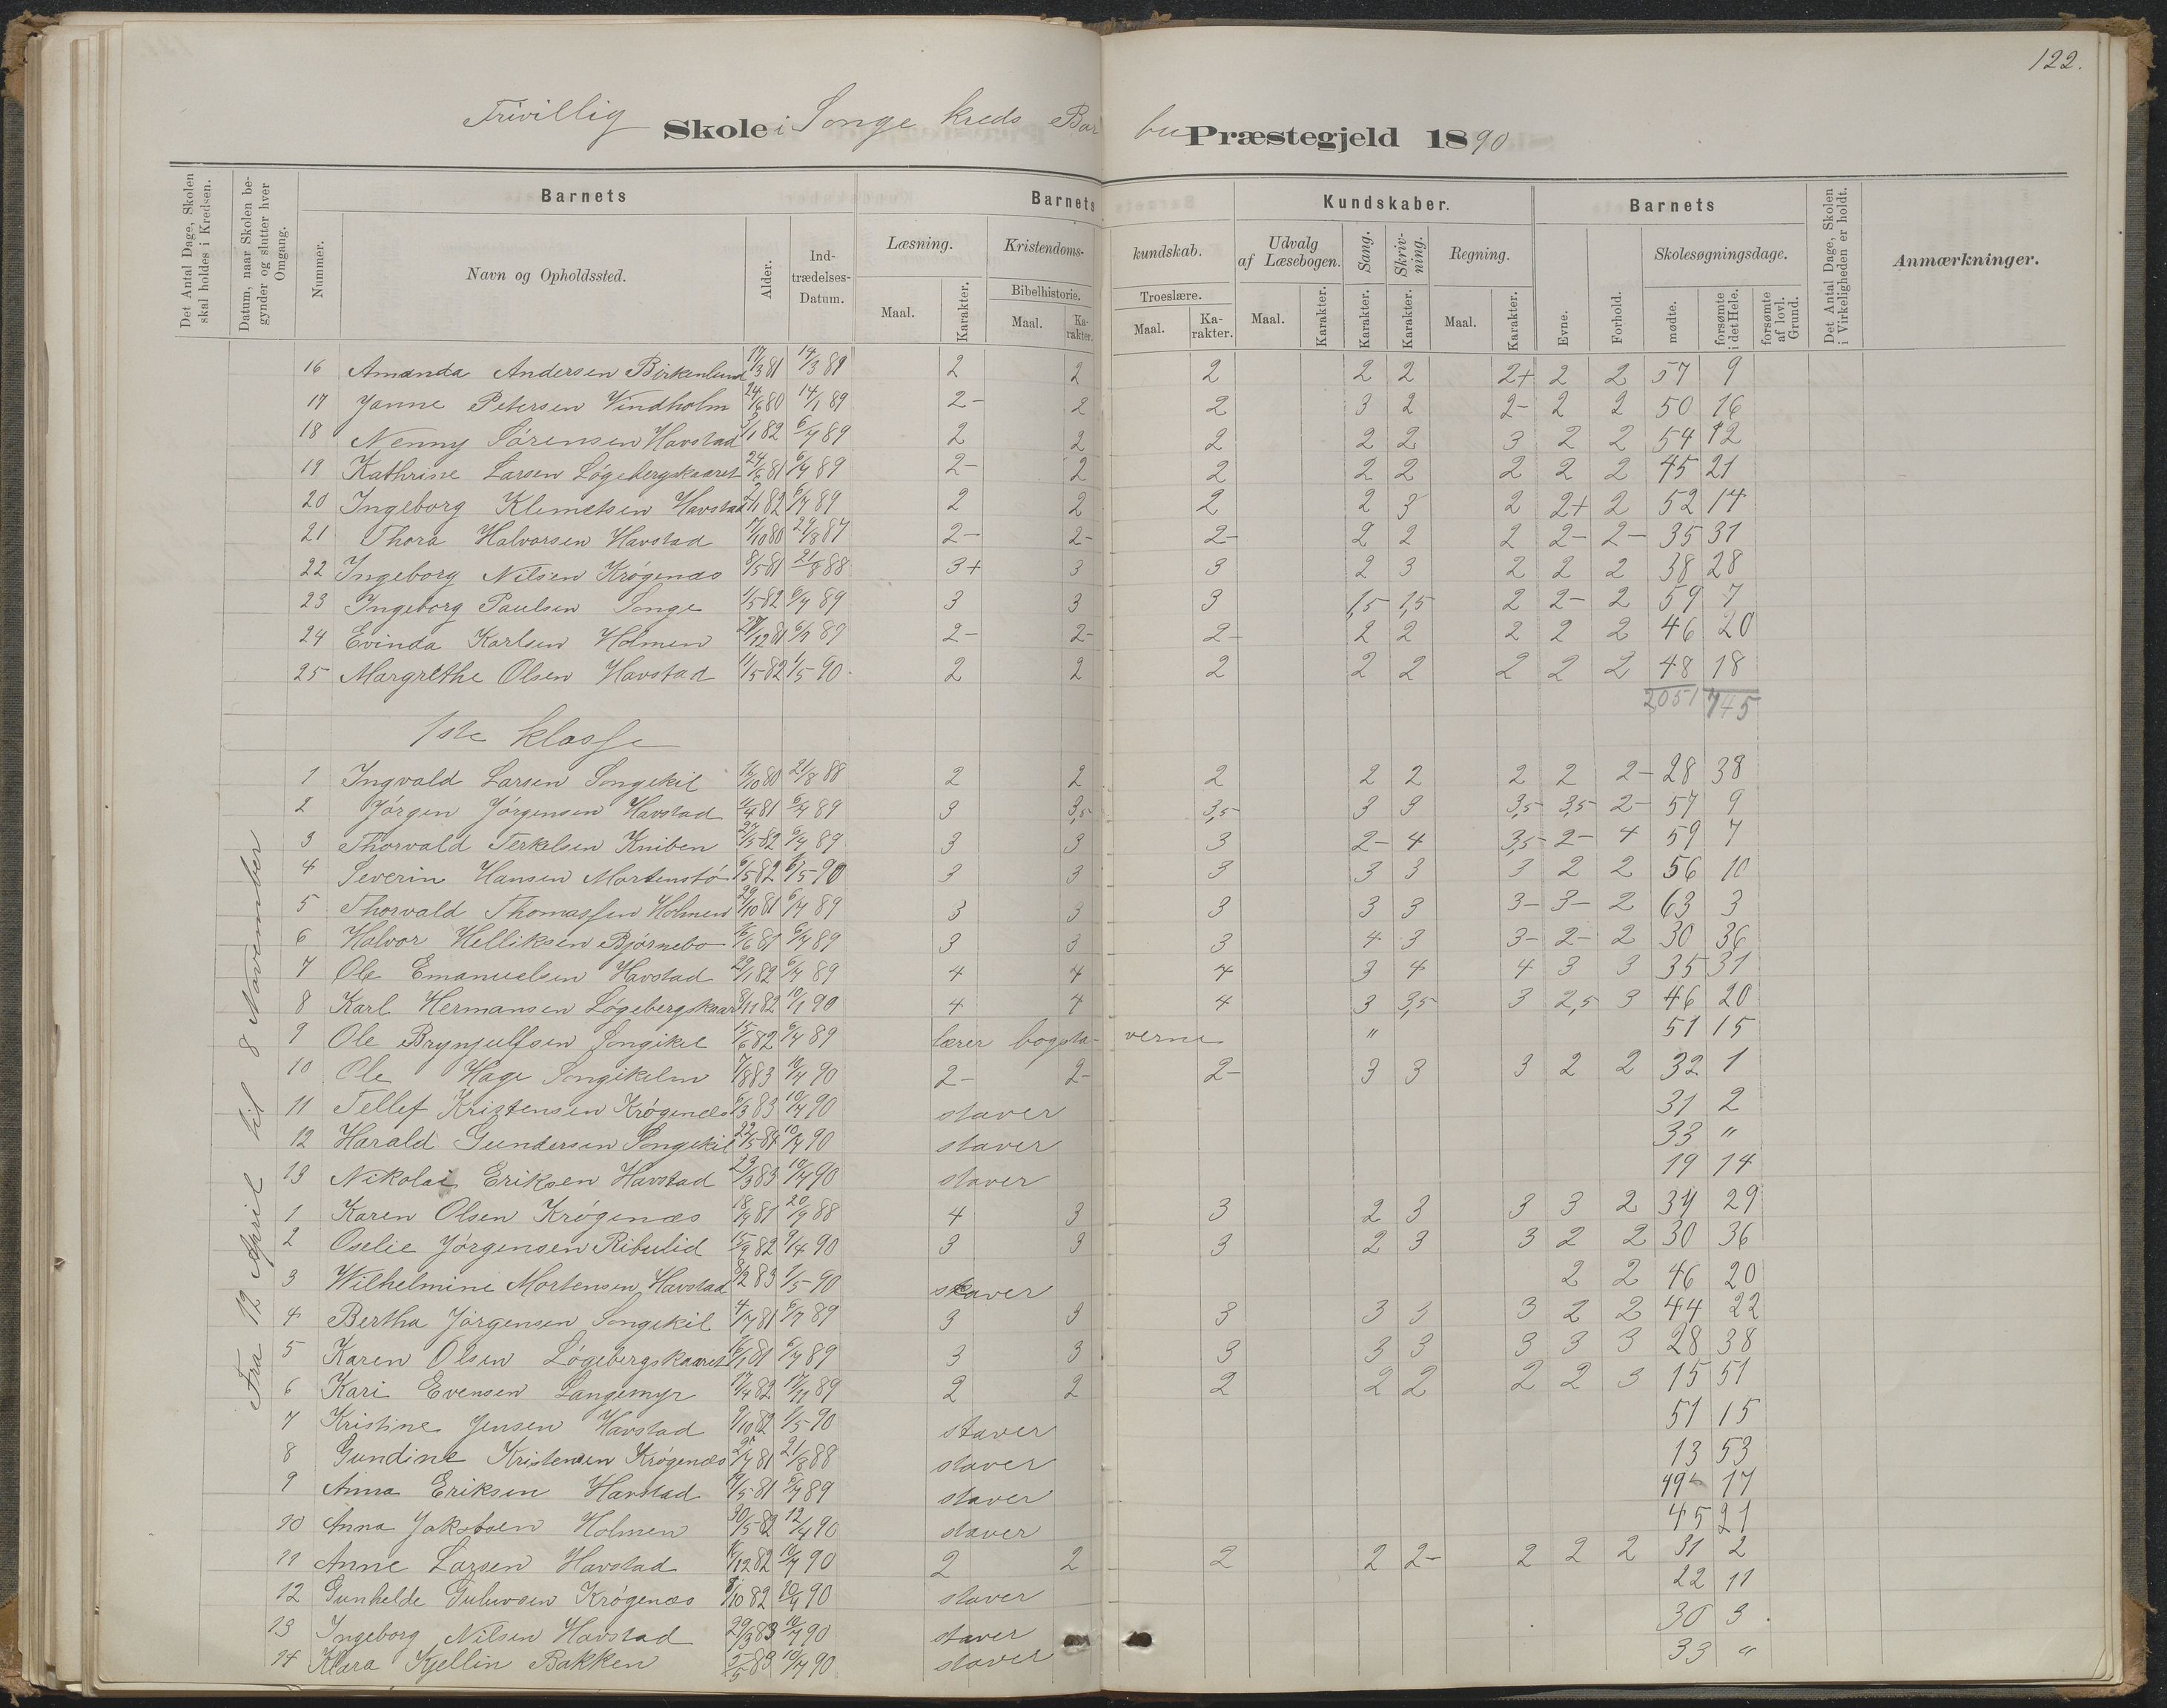 122.
Frivillig Skole i Songe kreds Barbu Præstegjeld 1890
Det Antal Dage, Skolen skal holdes i Kredsen.
Datum, naar Skolen begynder og slutter hver Omgang.
Barnets
Nummer.
Navn og Opholdssted.
Alder.
Indtrædelses-Datum.
Barnets Kundskaber.
Læsning. Maal. Karakter.
Kristendomskundskab.
Bibelhistorie. Maal. Karakter.
Troeslære. Maal. Karakter.
Udvalg af Læsebogen. Maal. Karakter.
Sang. Karakter.
Skrivning. Karakter.
Regning. Maal. Karakter.
Barnets
Evne. Forhold.
Skolesøgningsdage.
mødte. forsømte i det Hele. forsømte af lovl. Grund.
Det Antal Dage, Skolen i Virkeligheden er holdt.
Anmærkninger.
16 Amanda Andersen Birkenlund 17/3 81 14/3 89 2 2 2 2 2 2+ 2 2 57 9
17 Janne Petersen Vindholm 24/6 80 14/1 89 2- 2 2 3 2 2- 2 2 50 16
18 Nenny Sørensen Havstad 82 89 2 2 2 2 2 3 2 2 54 12
19 Kathrine Larsen Løgebergskaaret 24/6 81 89 2- 2 2 2 2 2 2 2 45 21
20 Ingeborg Klemetsen Havstad 82 89 2 2 2 2 3 2 2+ 2 52 14
21 Thora Halvorsen Havstad 17/10 80 29/8 87 2- 2- 2- 2 2 2 2- 2- 35 31
22 Ingeborg Nilsen Krøgenæs 8/5 81 21/8 88 3+ 3 3 2 3 2 2 2 38 28
23 Ingeborg Paulsen Songe 1/5 82 89 3 3 3 1,5 1,5 2 2- 2 59 7
24 Evinda Karlsen Holmen 81 89 2- 2- 2- 2 2 2 2 2 46 20
25 Margrethe Olsen Havstad 11/5 82 1/5 90 2 2 2 2 2 2 2 2 48 18
2051 745
1ste klasse
Fra 12 April til 8 November
1 Ingvald Larsen Songekil 16/10 80 21/8 88 2 2 2 2 2 2 2 2- 28 38
2 Jørgen Jørgensen Havstad 11/4 81 89 3 3,5 3,5 3 3 3,5 3,5 2- 57 9
3 Thorvald Terkelsen Kniben 27/5 82 89 3 3 3 2- 4 3,5 2- 4 59 7
4 Severin Hansen Mortenstø 6/5 82 90 3 3 3 3 3 3 2 2 56 10
5 Thorvald Thomassen Holmen 29/10 81 89 3 3 3 3 3 3- 3- 2 63 3
6 Halvor Helliksen Bjørnebo 81 89 3 3 3 4 3 3- 2- 2 30 36
7 Ole Emanuelsen Havstad 29/1 82 89 4 4 4 3 4 4 3 3 35 31
8 Karl Hermansen Løgebergskaar 8/11 82 10/1 90 4 4 4 3 3,5 3 2,5 3 46 20
9 Ole Brynjulfsen Songikil 15/6 82 89 lærer bogstaverne " 51 15
10 Ole Hage Songikelen 7/8 83 90 2- 2- 2- 3 3 3 2 2 32 1
11 Tellef Kristensen Krøgenæs 6/3 83 90 staver 31 2
12 Harald Gundersen Songekil 22/5 84 90 staver 33 "
13 Nikolai Eriksen Havstad 83 90 staver 19 14
1 Karen Olsen Krøgenæs 81 88 4 3 3 2 3 3 3 2 34 29
2 Oselie Jørgensen Ribulid 15/9 82 90 3 3 3 2 3 3 2 2 30 36
3 Wilhelmine Mortensen Havstad 83 90 staver 2 2 46 20
4 Bertha Jørgensen Songekil 81 89 3 3 3 3 3 3 2 2 44 22
5 Karen Olsen Løgebergskaaret 81 89 3 3 3 3 3 3 3 3 28 38
6 Kari Evensen Langemyr 17/4 82 17/11 89 2 2 2 2 2 2 2 3 15 51
7 Kristine Jensen Havstad 9/10 82 90 staver 51 15
8 Gundine Kristensen Krøgenæs 81 21/8 88 staver 13 53
9 Anna Eriksen Havstad 81 89 staver 49 17
10 Anna Jakobsen Holmen 30/5 82 12/4 90 staver 45 21
11 Anne Larsen Havstad 82 90 2 2 2 2 2- 2 2 2 31 2
12 Gunhelde Krøgenæs 82 90 staver 22 11
13 Ingeborg Nilsen Havstad 29/3 83 90 staver 30 3
14 Klara Kjellin Bakken 5/5 83 90 staver 33 "